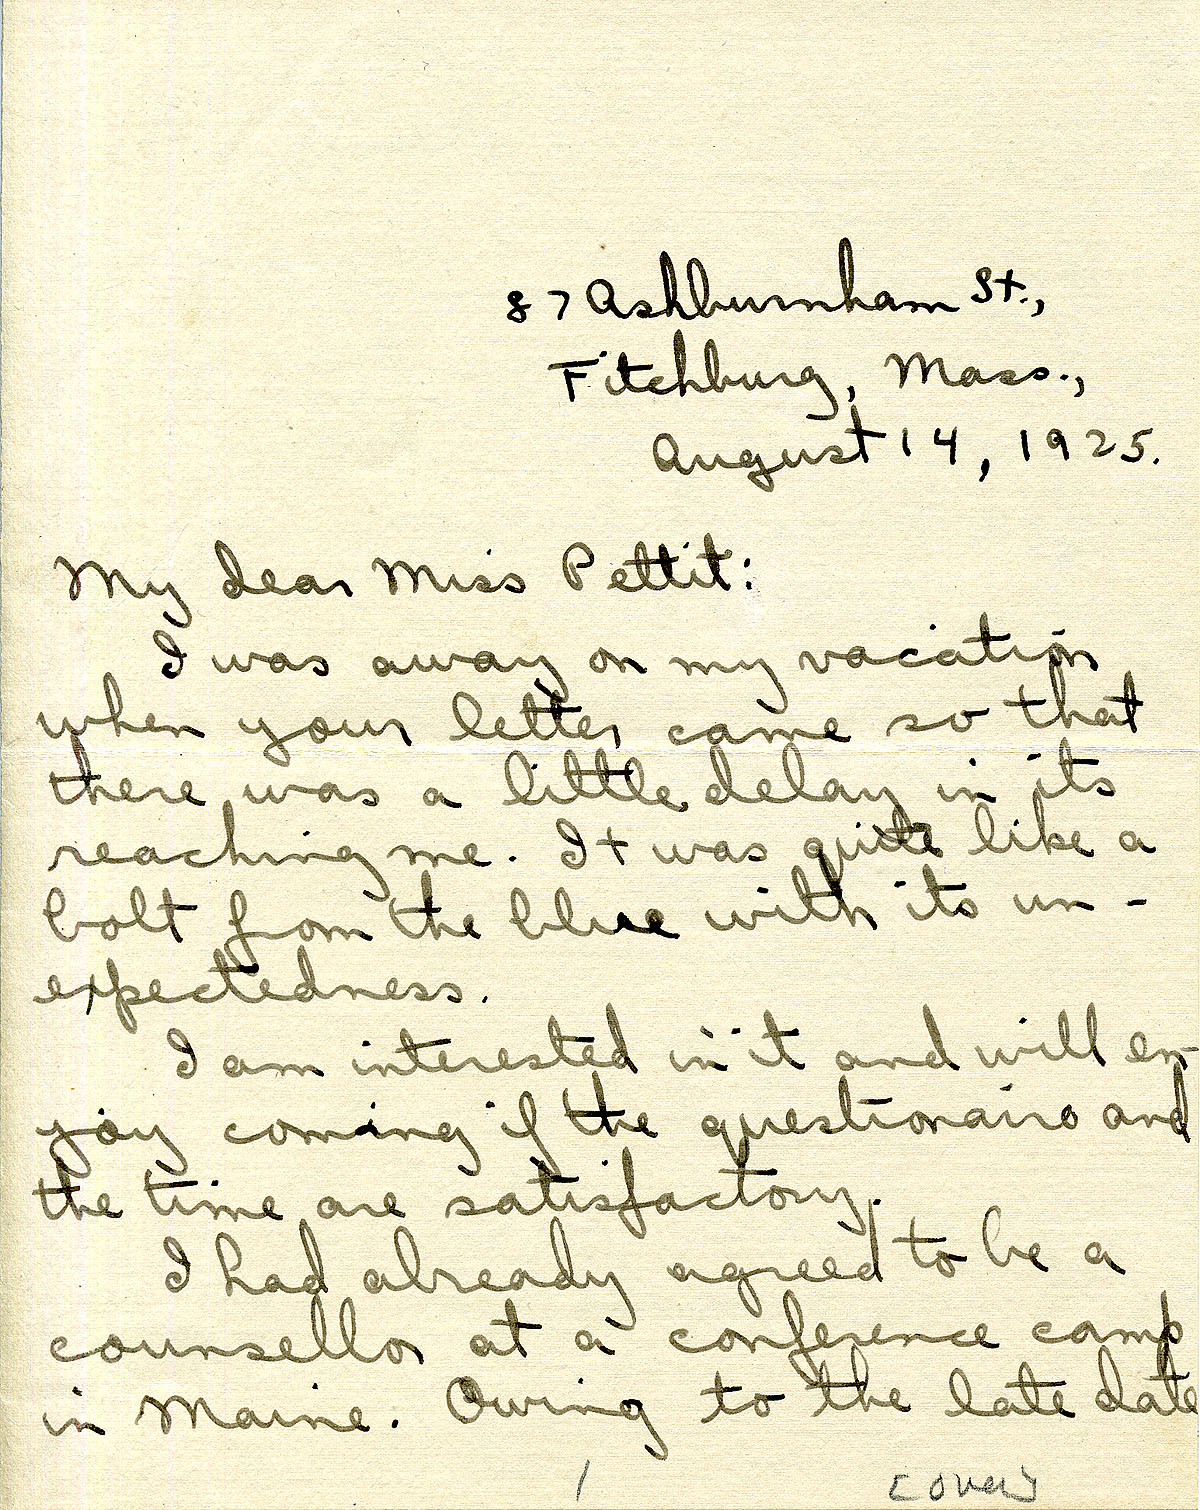 87 Ashburnham St.,
Fitchburg, Mass.,
August 14, 1925.
My dear Miss Pettit:
I was away on my vacation
when your letter came so that
there was a little delay in its
reaching me. It was quite like a
bolt from the blue with its un-
expectedness.
I am interested in it and will en-
joy coming if the questionairo and
the time are satisfactory.
I had already agreed to be a
counsellor at a conference camp
in Maine. Owing to the late date
1 [over]